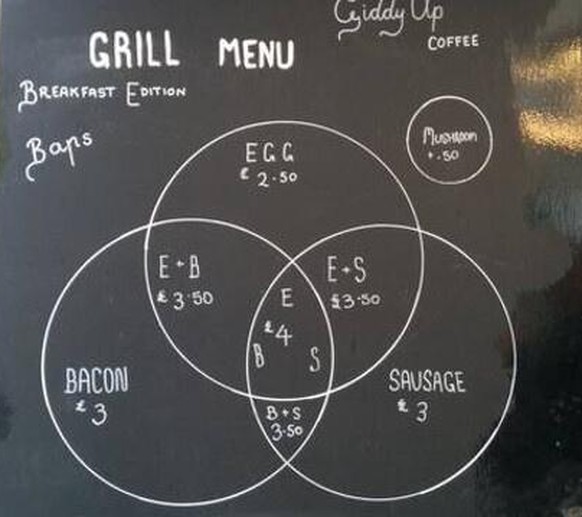 Giddy Up
COFFEE
GRILL MENU
BREAKFAST EDITION
Baps
MUSHROOM
+.50
EGG
£ 2.50
E+B
£3.50
E+S
£3.50
E
£4
B S
BACON
£3
SAUSAGE
£3
B+S
3.50